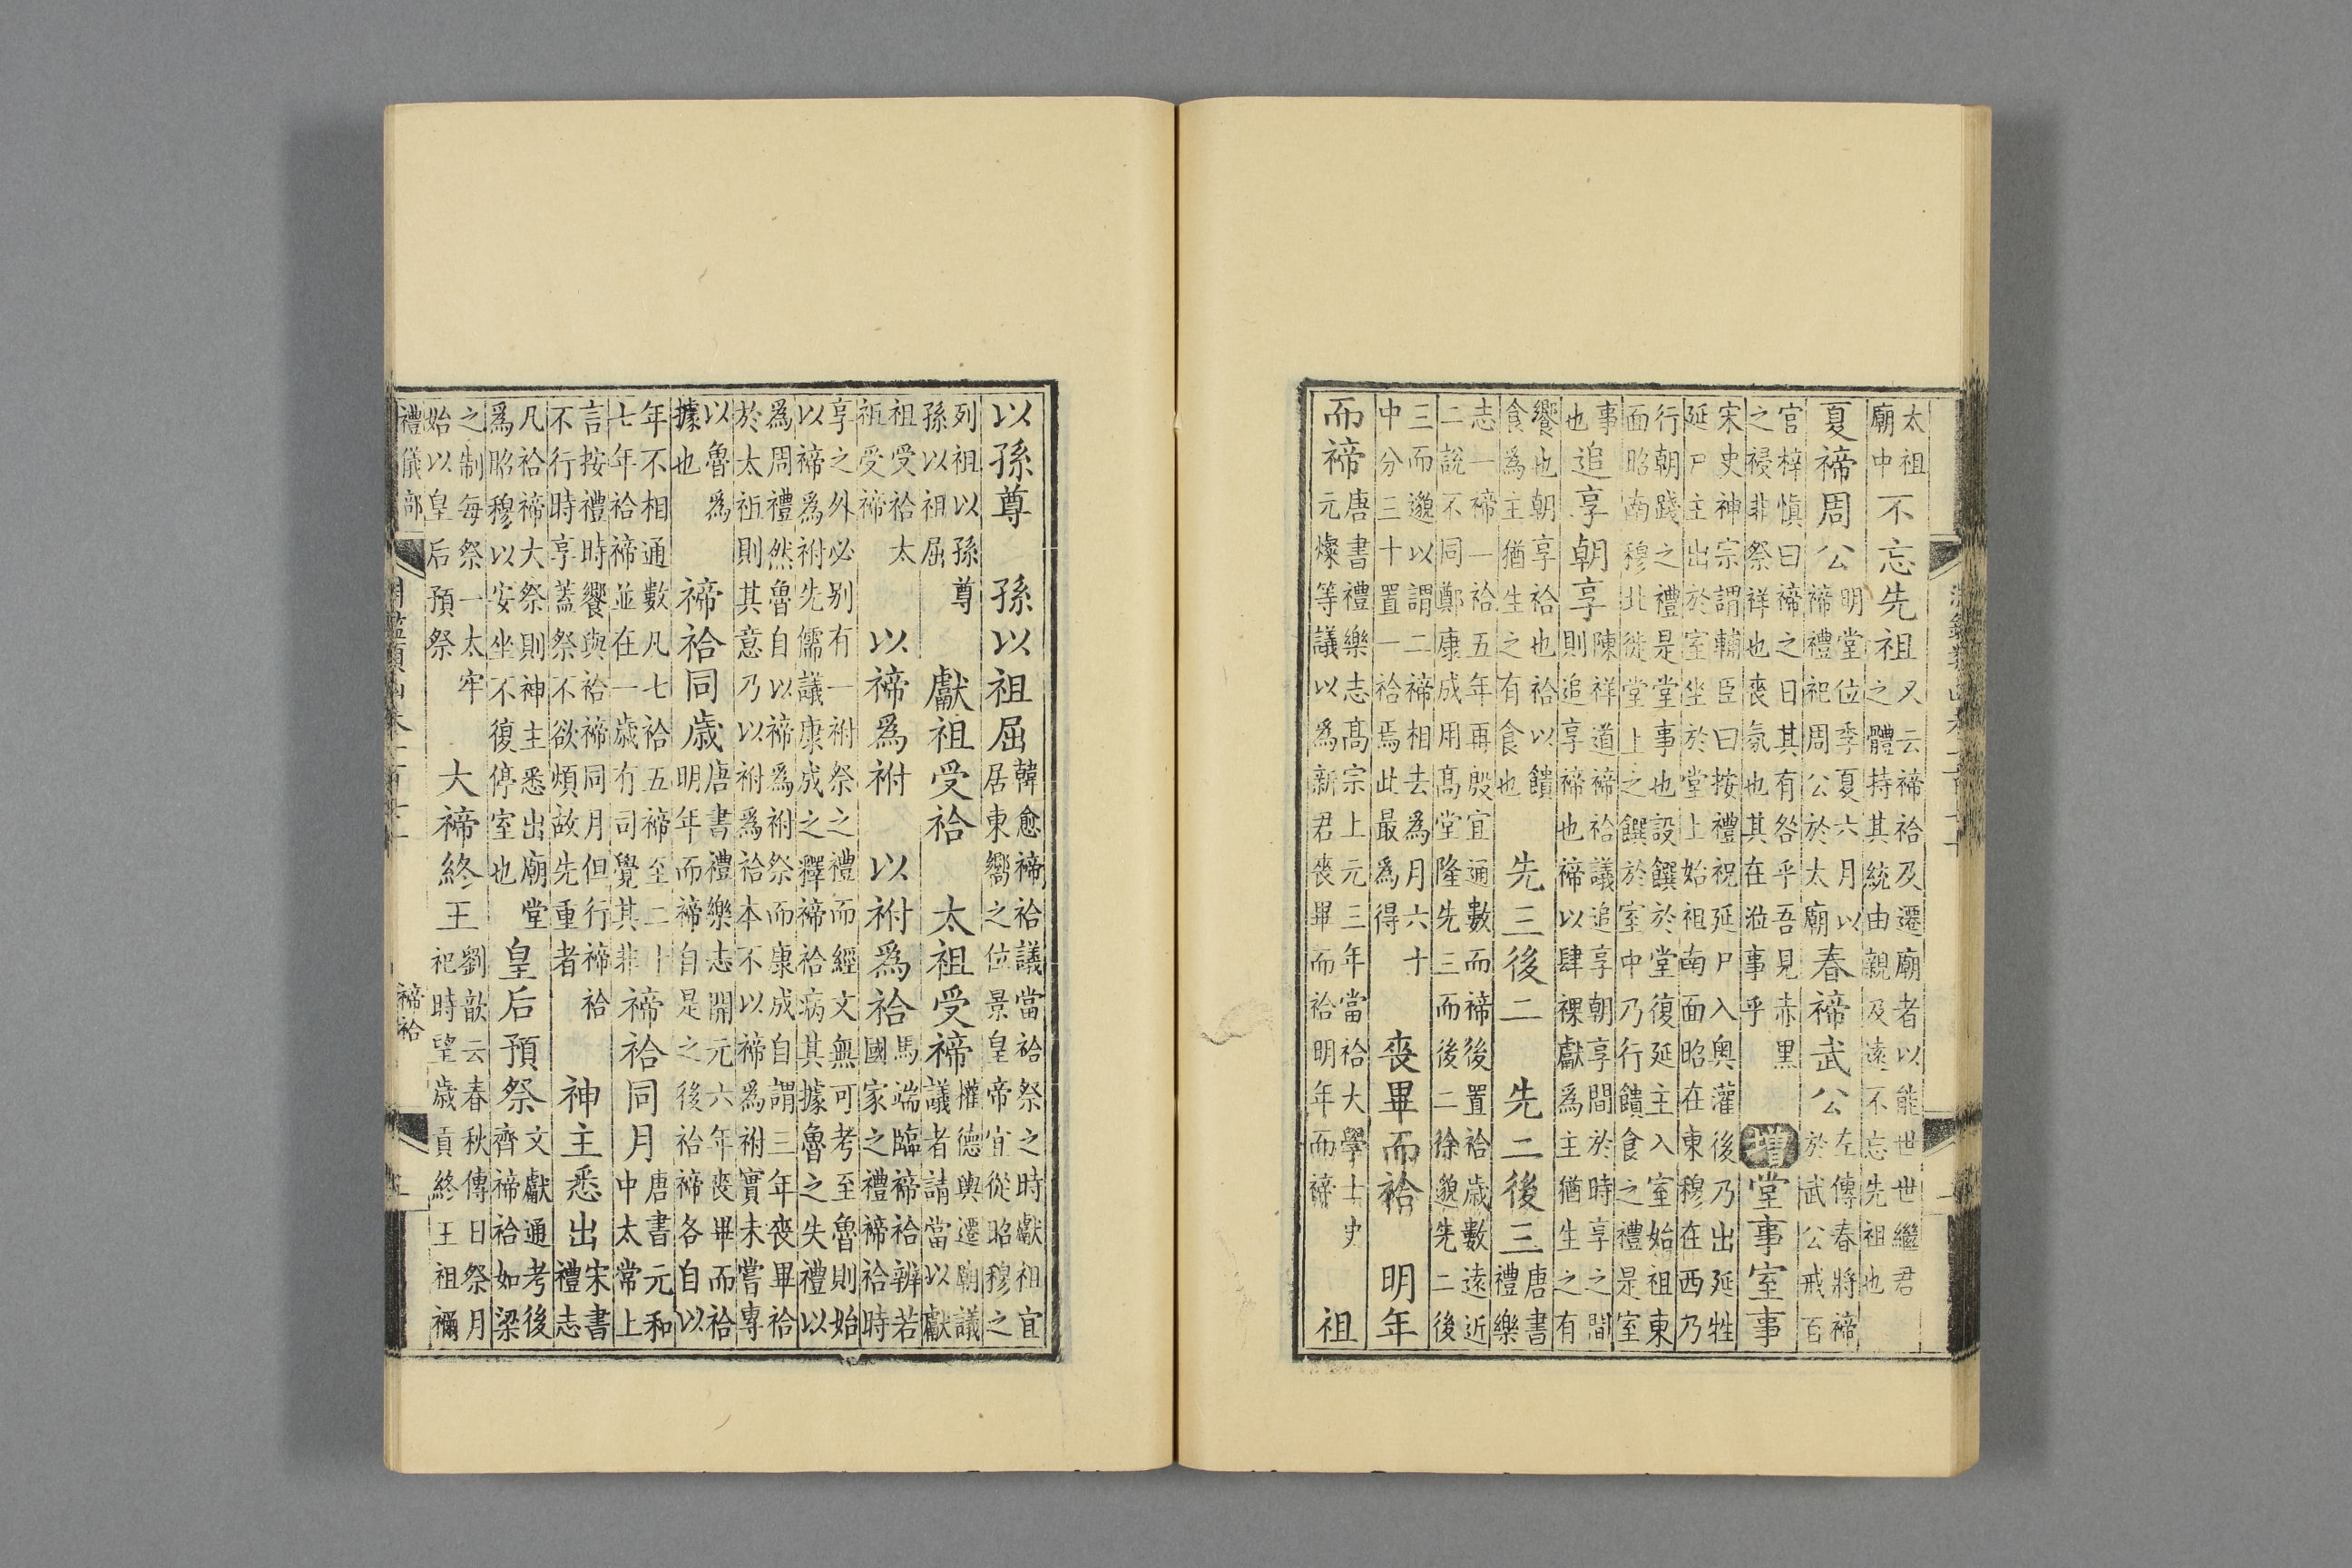 太祖廟中不忘先祖又云禘祫及遷廟者以能世世繼君之體持其統由親及遠不忘先祖也
夏禘周公明堂位季夏六月以禘禮祀周公於太廟春禘武公左傳春將禘於武公戒百
官梓慎曰禘之日其有咎乎吾見赤黑之祲非祭祥也喪氛也其在涖事乎增堂事室事
宋史神宗謂輔臣曰按禮祝延尸入奧灌後乃出延牲延尸主出於室坐於堂上始祖南面昭在東穆在西乃
行朝踐之禮是堂事也設饌於堂復延主入室始祖東面昭南穆北徙堂上之饌於室中乃行饋食之禮是室
事也追享朝享陳祥道禘祫議追享朝享間於時享之間則追享禘也禘以肆祼獻爲主猶生之有
饗也朝享祫也祫以饋食爲主猶生之有食也先三後二 先二後三唐書禮樂
志一禘一祫五年再殷宜通數而禘後置祫歲數遠近二說不同鄭康成用高堂隆先三而後二徐邈先二後
三而邈以謂二禘相去爲月六十中分三十置一祫焉此最爲得喪畢而祫 明年
而禘唐書禮樂志高宗上元三年當祫大學士史元燦等議以爲新君喪畢而祫明年而禘祖
以孫尊 孫以祖屈韓愈禘祫議當祫祭之時獻祖宜居東嚮之位景皇帝宜從昭穆之
列祖以孫尊孫以祖屈獻祖受祫 太祖受禘權德輿遷廟議議者請當以獻
祖受祫太祖受禘以禘爲祔 以祔爲祫馬端臨禘祫辨若國家之禮禘祫時
享之外必別有一祔祭之禮而經文無可考至魯則始以禘爲祔先儒議康成之釋禘祫病其據魯之失禮以
爲周禮然魯自以禘爲祔祭而康成自謂三年喪畢祫於太祖則其意乃以祔爲祫本不以禘爲祔實未嘗專
以魯爲據也禘祫同歲唐書禮樂志開元六年喪畢而祫明年而禘自是之後祫禘各自以
年不相通數凡七祫五禘至二十七年祫禘並在一歲有司覺其非禘祫同月唐書元和中太常上
言按禮時饗與祫禘同月但行禘祫不行時享蓋祭不欲煩故先重者神主悉出宋書禮志
凡祫禘大祭則神主悉出廟堂爲昭穆以安坐不復停室也皇后預祭文獻通考後齊禘祫如梁
之制每祭一太牢始以皇后預祭大禘終王劉歆云春秋傳曰祭月祀時望歲貢終王祖禰
禮儀部
禘祫